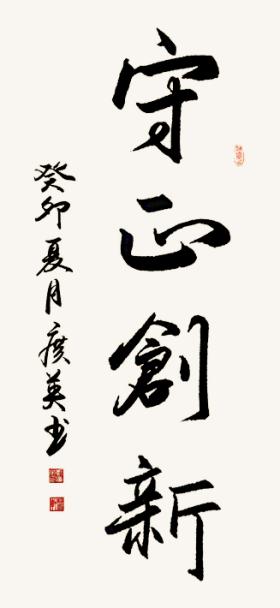 守正創新
癸卯夏月廣英书